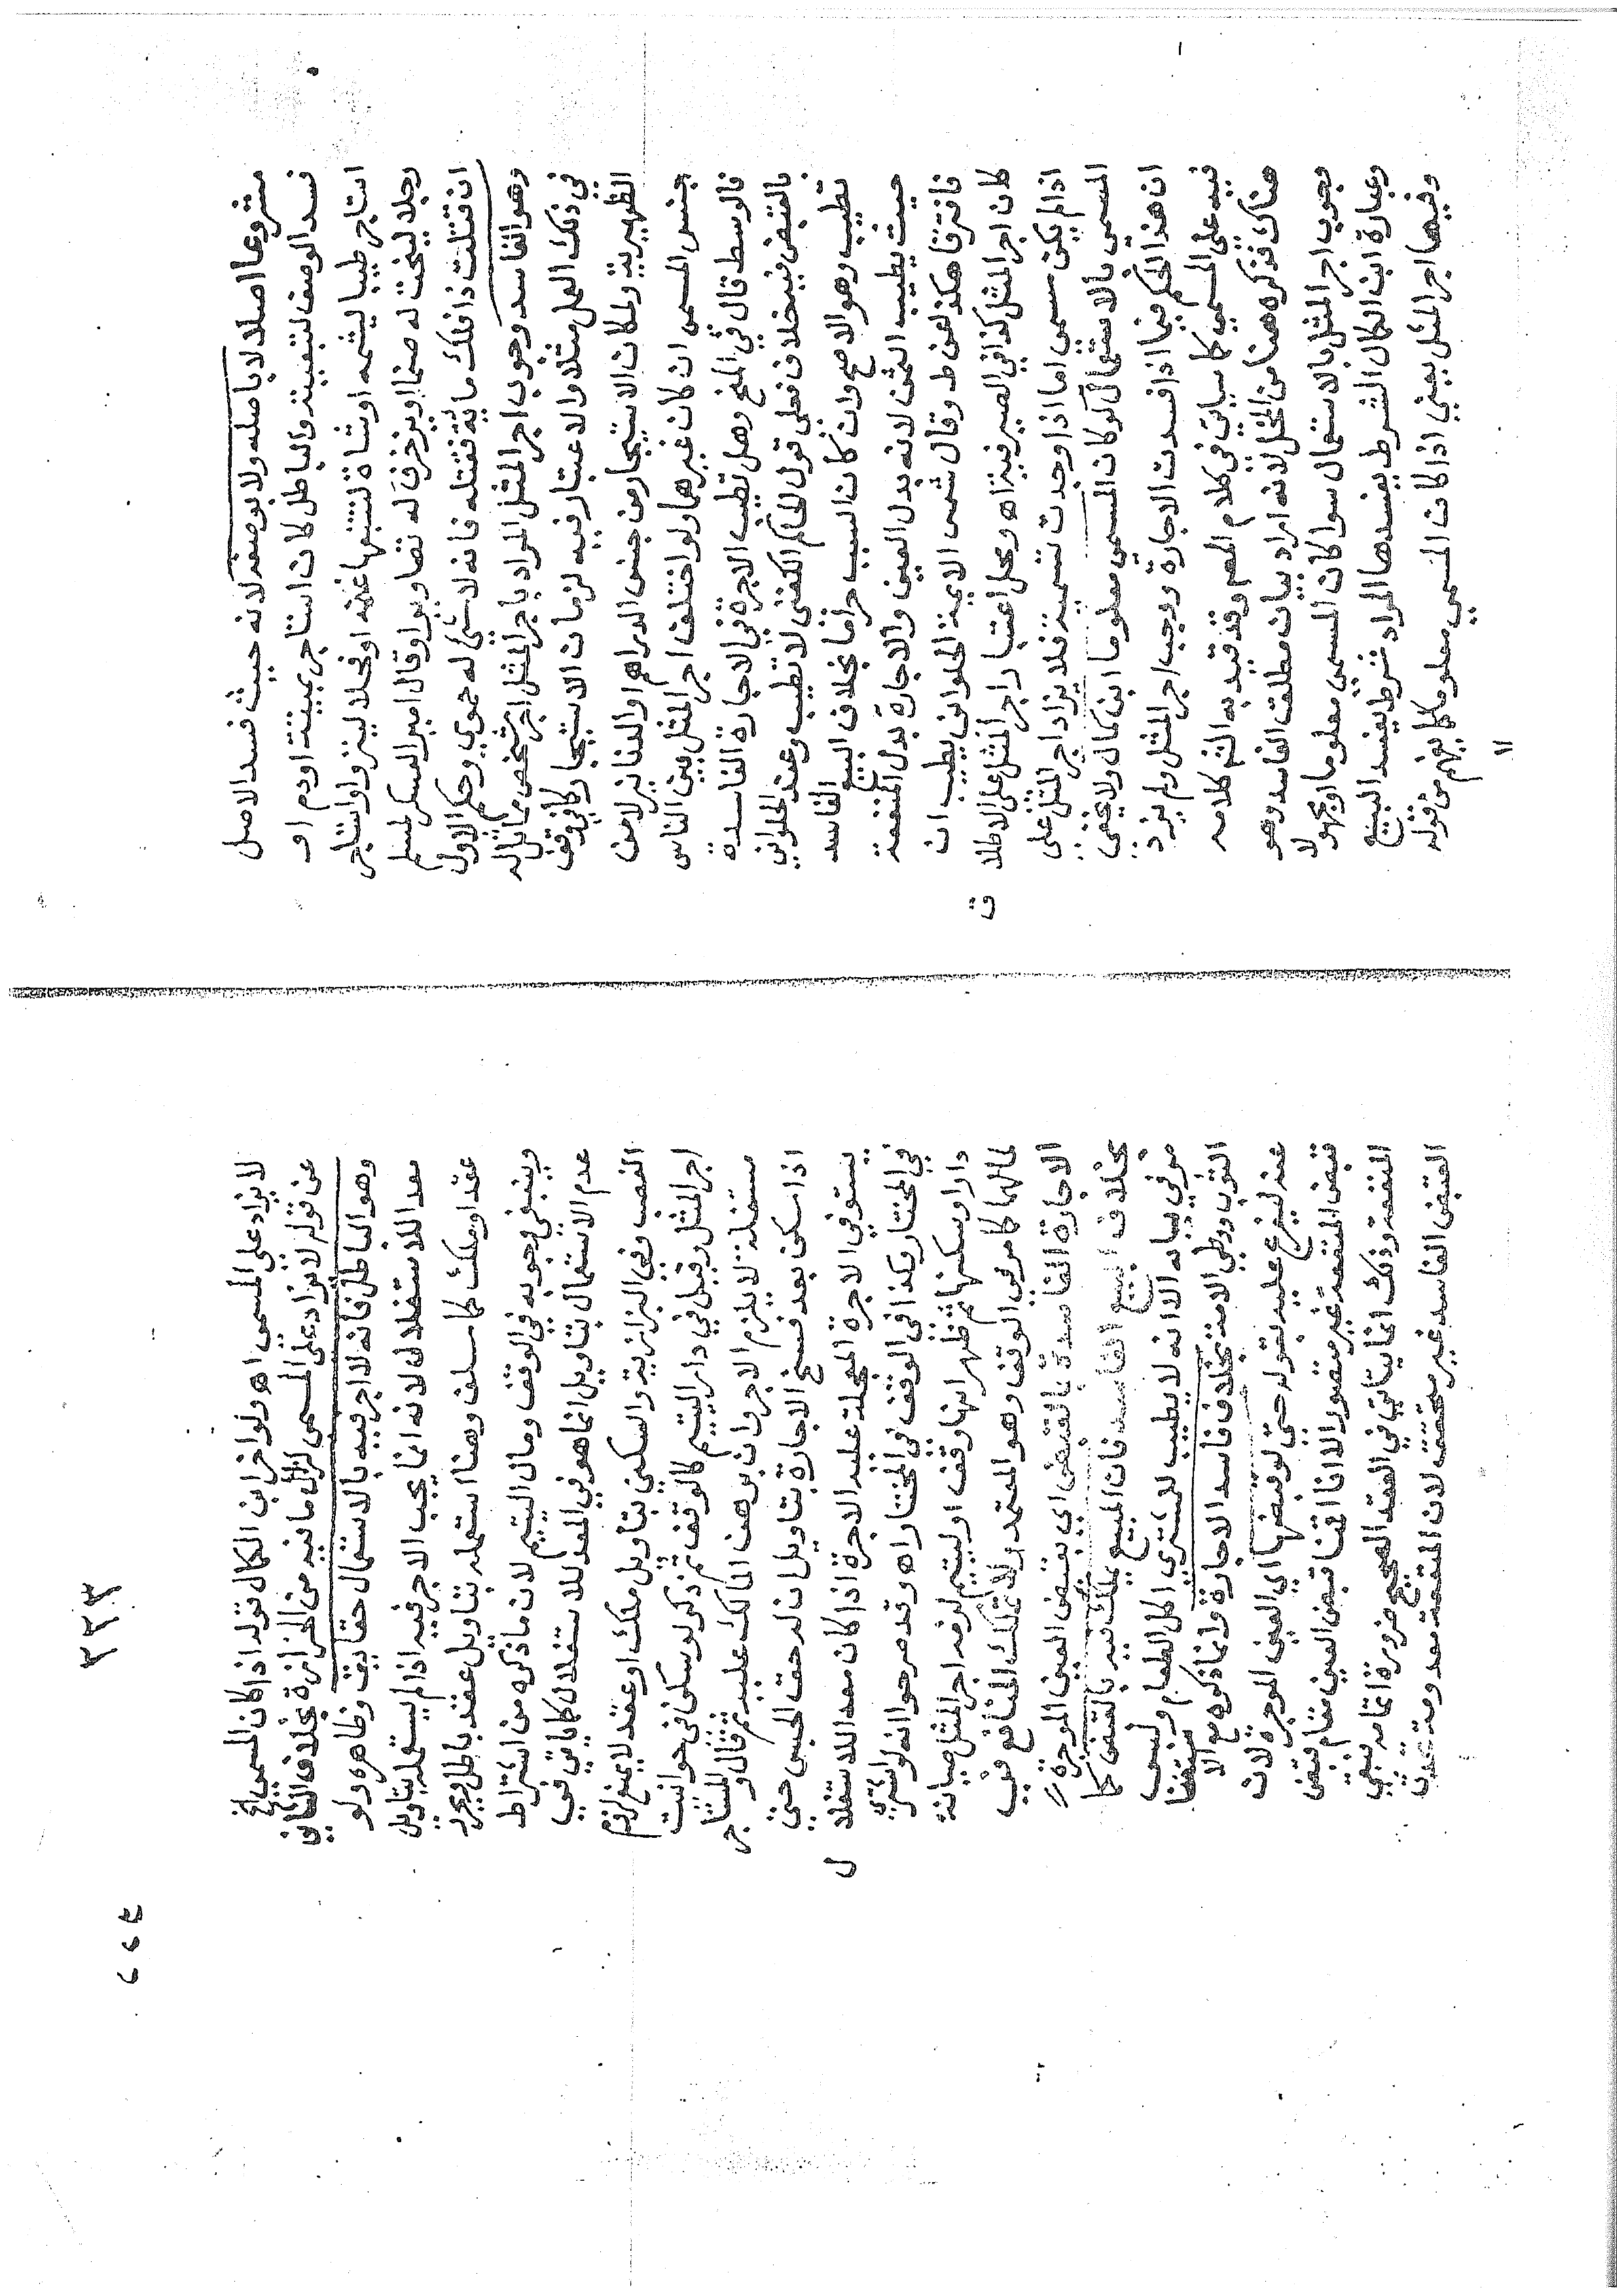 مشروعا اصلا لا باصله ولا بوصفه لانه حيث فسد الاصل
فسد الوصف لتبعيته والباطل كان استاجر بميتة او دم او
استاجر طيبا ليشمه او شاة لتتبعها غنمه او فحلا لينزو او استاجر
رجلا لينحت له صنما او يزخرف له تصاوير او قال امير العسكر لمسلم
ان قتلت ذا فلك ماية فقتله فانه لا شئ له حموي وحكم الاول
وهو الفاسد وجوب اجر المثل المراد باجر المثل اجر شخص مماثل له
في ذلك العمل مثلا والاعتبار فيه لزمان الاستيجار كما في وقف
الظهيرية ولمكان الاستيجار من جنس الدراهم او الدنانير لا من
جنس المسمى ان كان غيرهما ولو اختلف اجر المثل بين الناس
فالوسط قال في المنح وهل تطيب الاجرة في الاجارة الفاسدة
بالقبض فيه خلاف فعلى قول الحاكم الكفني لا تطيب وعند الحلواني
تطيب وهو الاصح وان كان السبب حراما بخلاف البيع الفاسد
حيث يطيب الثمن لانه بدل العين والاجارة بدل المنفعة
فافترقا هكذا عن ط وقال شمس الايمة الحلواني يطيب ان
كان اجر المثل كذا في الصيرفية اه ومحل اعتبار اجر المثل على الاطلاق
اذا لم يكن مسمى اما اذا وجدت تسمية فلا يزاد اجر المثل على
المسمى بالاستعمال لو كان المسمى معلوما ابن كمال ولا يخفى
ان هذا الحكم فيما اذا فسدت الاجارة ويجب اجر المثل ولم يزد
فيه على المسمى كما سياتي في كلام المصم وقد قيد به الشم كلامه
هناك فذكره هنا من الخلل لانه اراد بيان مطلق الفاسد وهو
وجوب اجر المثل بالاستعمال سوا كان المسمى معلوما او مجهولا
وعبارة ابن الكمال الشرط يفسدها المراد شرط يفسد البيع
وفيها اجر المثل يعني اذا كان المسمى معلوما كما يفهم من قوله
لا
٢٢٣
لا يزاد على المسمى اه ولو اخر ابن الكمال قوله اذا كان المسمى الخ
عن قوله لا يزاد على المسمى لزال ما فيه من الحزازة بخلاف الثاني
وهو الباطل فانه لا اجر فيه بالاستعمال حقايق وظاهره ولو
معدا للاستغلال لانه انما يجب الاجر فيه اذا لم يستعمله بتاويل
عقد او ملك كما سلف وهنا استعمله بتاويل عقد باطل ويجرد
وينبغي وجوبه في الوقف ومال اليتيم لان ما ذكره من اشتراط
عدم الاستعمال بتاويل انما هو في المعد للاستغلال كما ياتي في
الغصب وفي البزازية والسكنى بتاويل ملك او عقد لا يمنع لزوم
اجر المثل وقيل في دار اليتيم كالوقف ثم ذكر لو سكن في حوانيت
مستغلة لا يلزم الاجر وان برهن المالك عليه ثم قال والمستاجر
اذا سكن بعد فسخ الاجارة بتاويل ان له حق الحبس حتى
يستوفي الاجرة المعجلة عليه الاجرة اذا كان معدا للاستغلال
في المختار وكذا في الوقف في المختار اه وقد صرحوا انه لو اشترى
دارا وسكنها ثم ظهر انها وقف او ليتيم لزمه اجر المثل صيانة
لمالهما كما مر في الوقف وهو المعتمد ولا تملك المنافع في
الاجارة الفاسدة بالقبض اي بقبض العين الموجرة
بخلاف البيع الفاسد فان المبيع يملك فيه بالقبض كما
مر في بيابه الا انه لا يطيب للمشتري اكل الطعام ولبس
الثوب ووطي الامة بخلاف فاسد الاجارة وانما ذكره مع الاستغنا
عنه ليفرع عليه بقوله حتى لو قبضها اي العين الموجرة لان
قبض المنفعة غير متصور الا انا اقمنا قبض العين مقام قبض
المنفعة وذلك انما ياتي في العقد الصحيح ضرورة اتمامه فبقي
القبض الفاسد غير متحقق لان المنفعة معدومة تحدث
٢٢٤